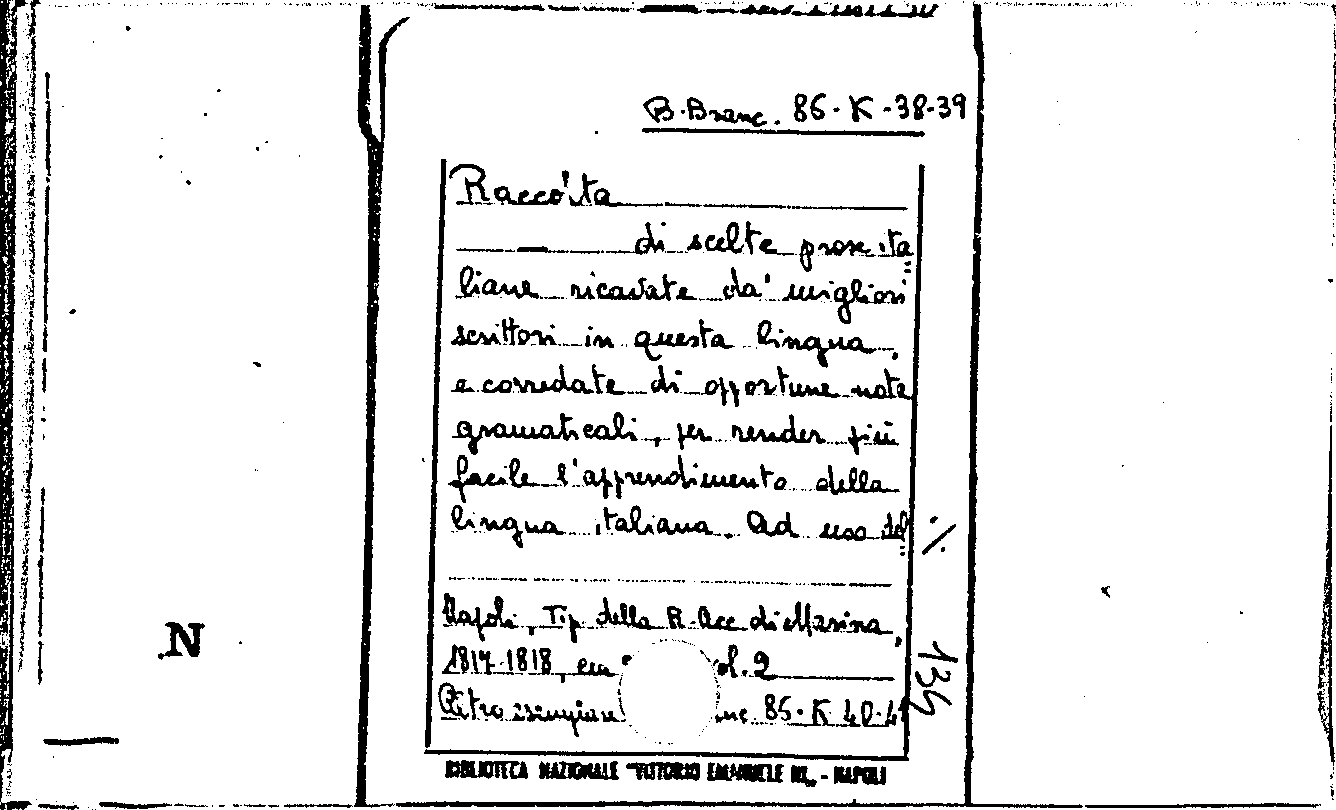 B. Branc. 86-K-38-39
Raccolta
di scelte prose ita
liane ricavate da' migliori
scrittori in questa lingua,
e corredate di opportune note
gramaticali, per render più
facile l'apprendimento della
lingua italiana. Ad uso del
./.
Napoli, Tip. della R. Acc. di Marina,
1817-1818, cm vol. 2
Altro esemplare 86-K 40-41
134
N
BIBLIOTECA NAZIONALE "VITTORIO EMANUELE III" - NAPOLI